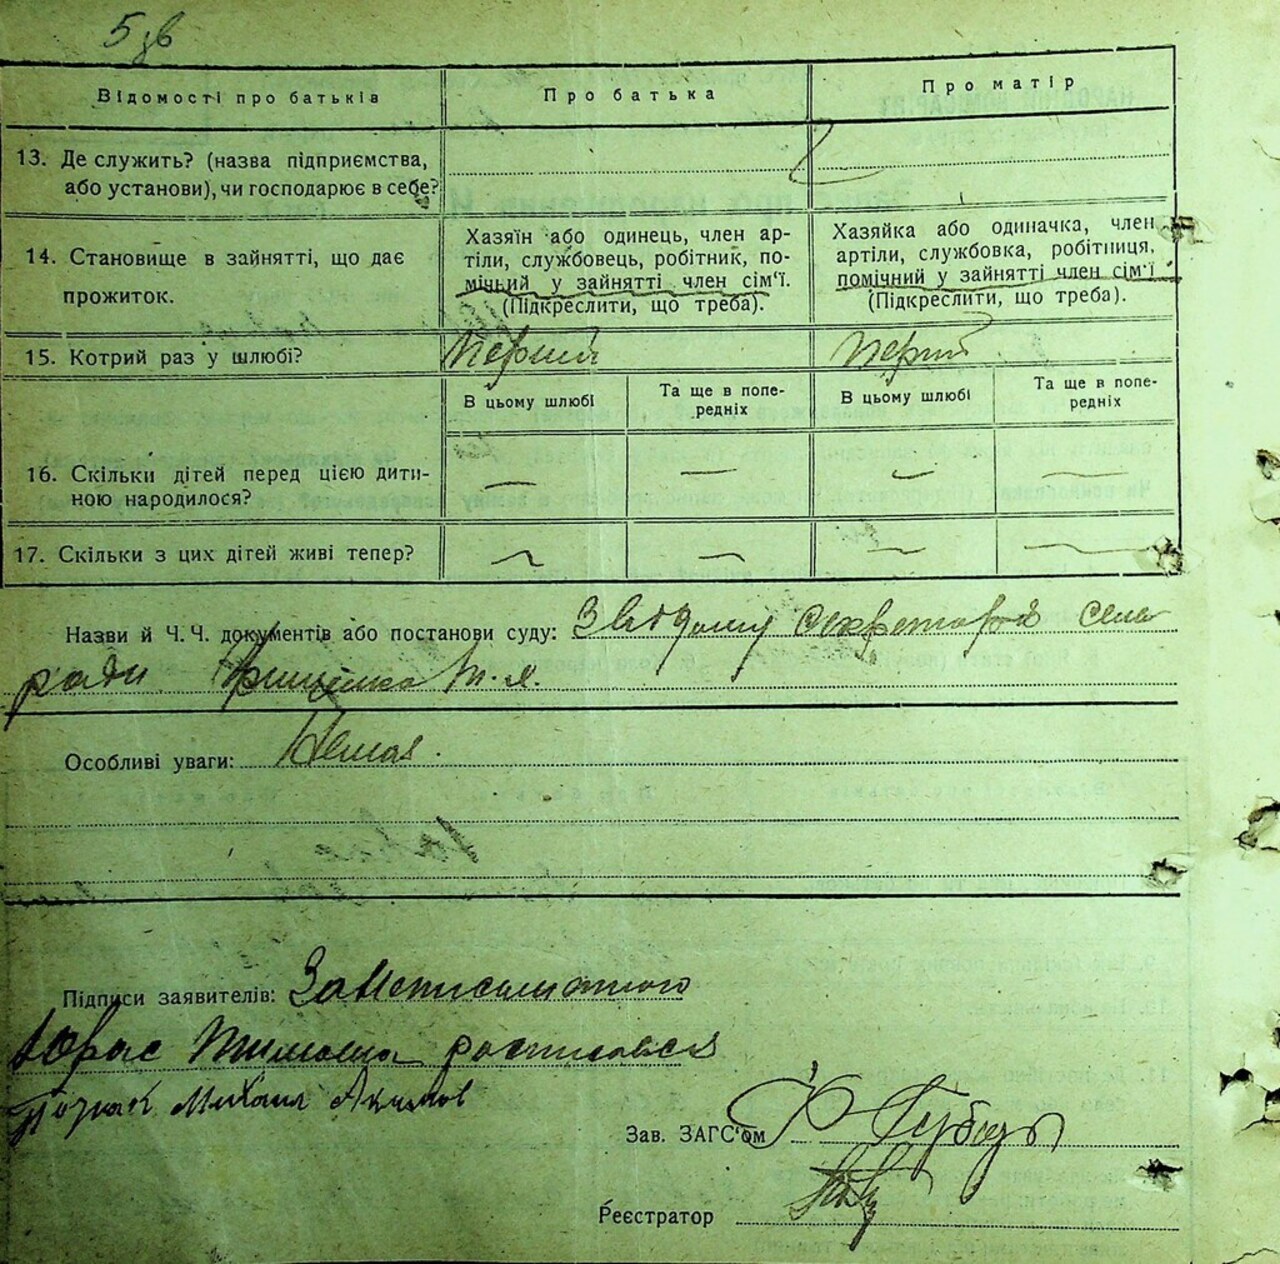 5 зв
Відомості про батьків Про батька Про матір
13. Де служить? (назва підприємства,
або установи), чи господарює в себе?
14. Становище в зайнятті, що дає
прожиток.
Хазяїн або одинець, член ар-
тілі, службовець, робітник, по-
мічний у зайнятті член сім'ї.
(Підкреслити, що треба).
Хазяйка або одиначка, член
артілі, службовка, робітниця,
помічний у зайнятті член сім'ї
(Підкреслити, що треба).
15. Котрий раз у шлюбі? Перший перший
В цьому шлюбі Та ще в попе-
редніх
В цьому шлюбі Та ще в попе-
редніх
16. Скільки дітей перед цією дити- — — — —
ною народилося?
17. Скільки з цих дітей живі тепер? — — — —
Назви й Ч.Ч. документів або постанови суду: З відому секретаря сель
ради
Особливі уваги: Немає.
Підписи заявителів: За неписьменного
Юрас расписався
Михаил Акимов
Зав. ЗАГС'ом
Реєстратор